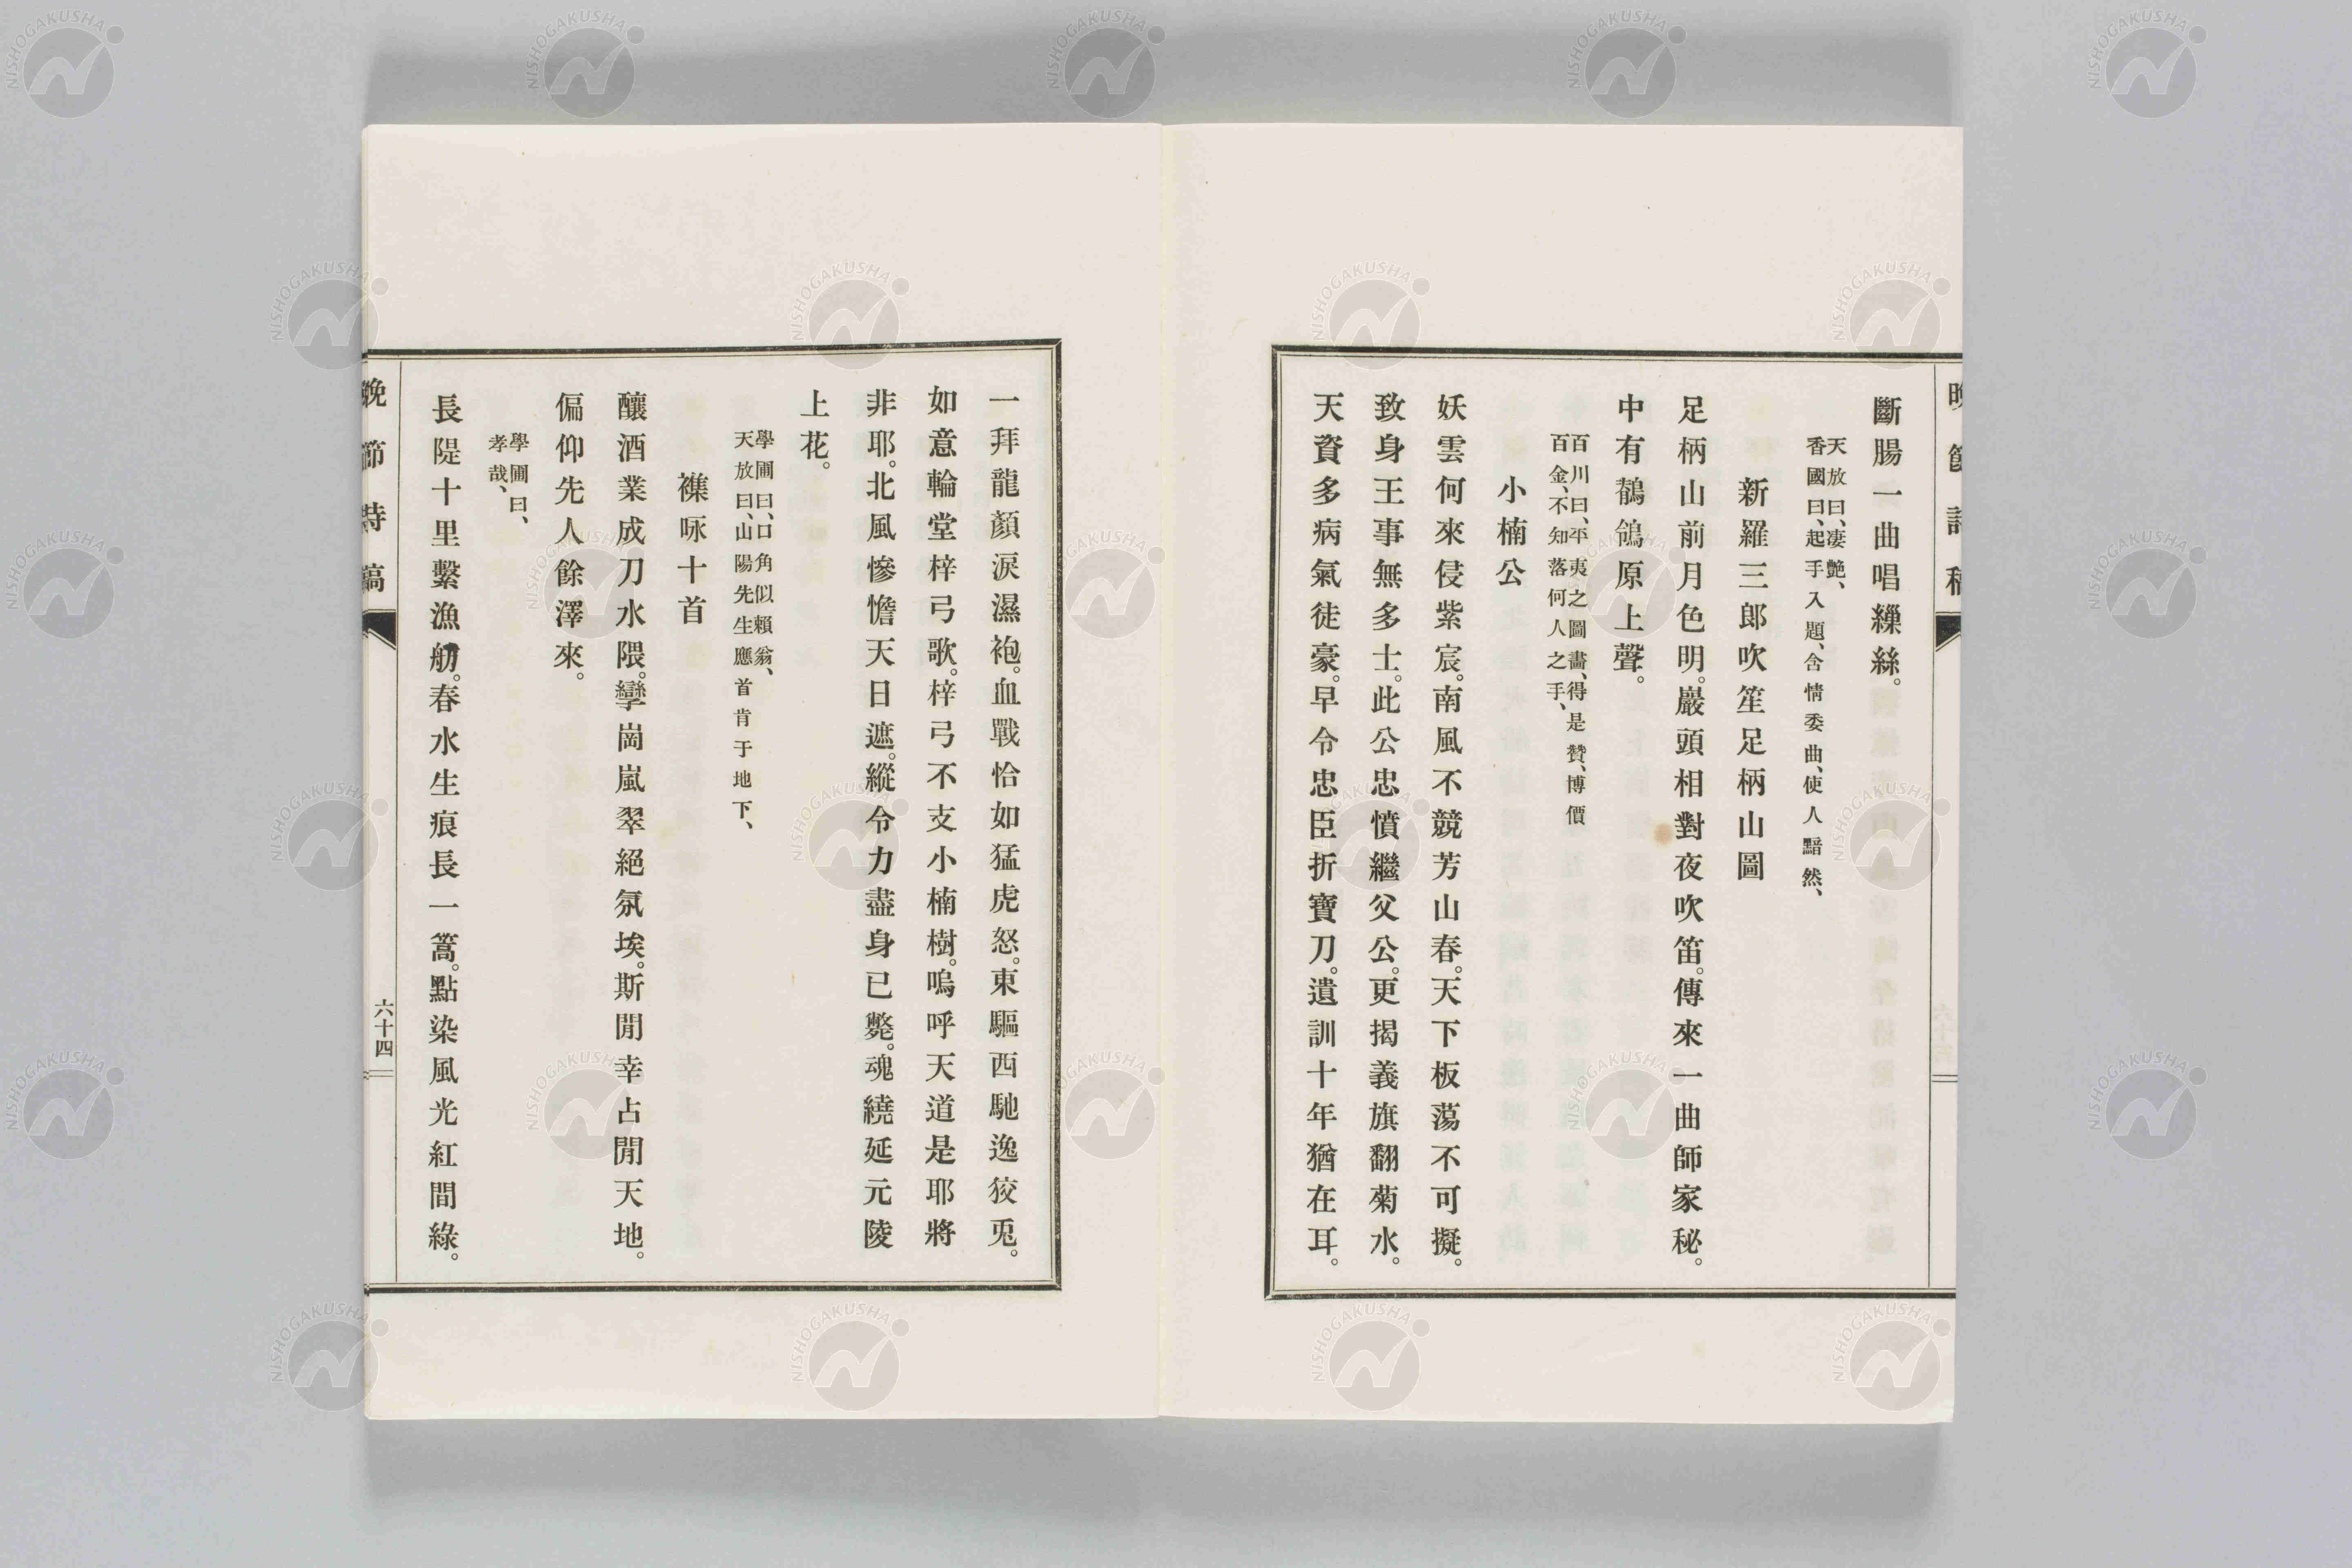 斷腸一曲唱繅絲。
天放曰、凄艶、
香國曰、起手入題、含情委曲、使人黯然、
新羅三郎吹笙足柄山圖
足柄山前月色明。巖頭相對夜吹笛。傳來一曲師家秘。
中有鶺鴒原上聲。
百川曰、平夷之圖畵、得是贊、博價
百金、不知落何人之手、
小楠公
妖雲何來侵紫宸。南風不競芳山春。天下板蕩不可擬。
致身王事無多士。此公忠憤繼父公。更揭義旗翻菊水。
天資多病氣徒豪。早令忠臣折寶刀。遺訓十年猶在耳。
一拜龍顏淚濕袍。血戰恰如猛虎怒。東驅西馳逸狡兎。
如意輪堂梓弓歌。梓弓不支小楠樹。嗚呼天道是耶將
非耶。北風慘憺天日遮。縱令力盡身已斃。魂繞延元陵
上花。
學圃曰、口角似賴翁、
天放曰、山陽先生應首肯于地下、
襍咏十首
釀酒業成刀水隈。孿崗嵐翠絕氛埃。斯閒幸占閒天地。
偏仰先人餘澤來。
學圃曰、
孝哉、
長隄十里繫漁舫。春水生痕長一篙。點染風光紅間綠。
晚節詩稿
六十四